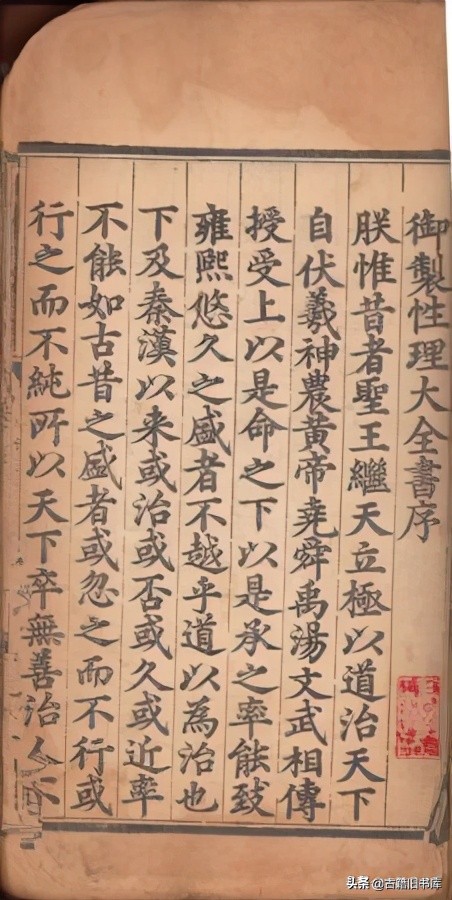 御製性理大全書序
朕惟昔者聖王繼天立極以道治天下
自伏羲神農黃帝堯舜禹湯文武相傳
授受上以是命之下以是承之率能致
雍熙悠久之盛者不越乎道以為治也
下及秦漢以来或治或否或久或近率
不能如古昔之盛者或忽之而不行或
行之而不純所以天下卒無善治人不
头条@古籍旧书库